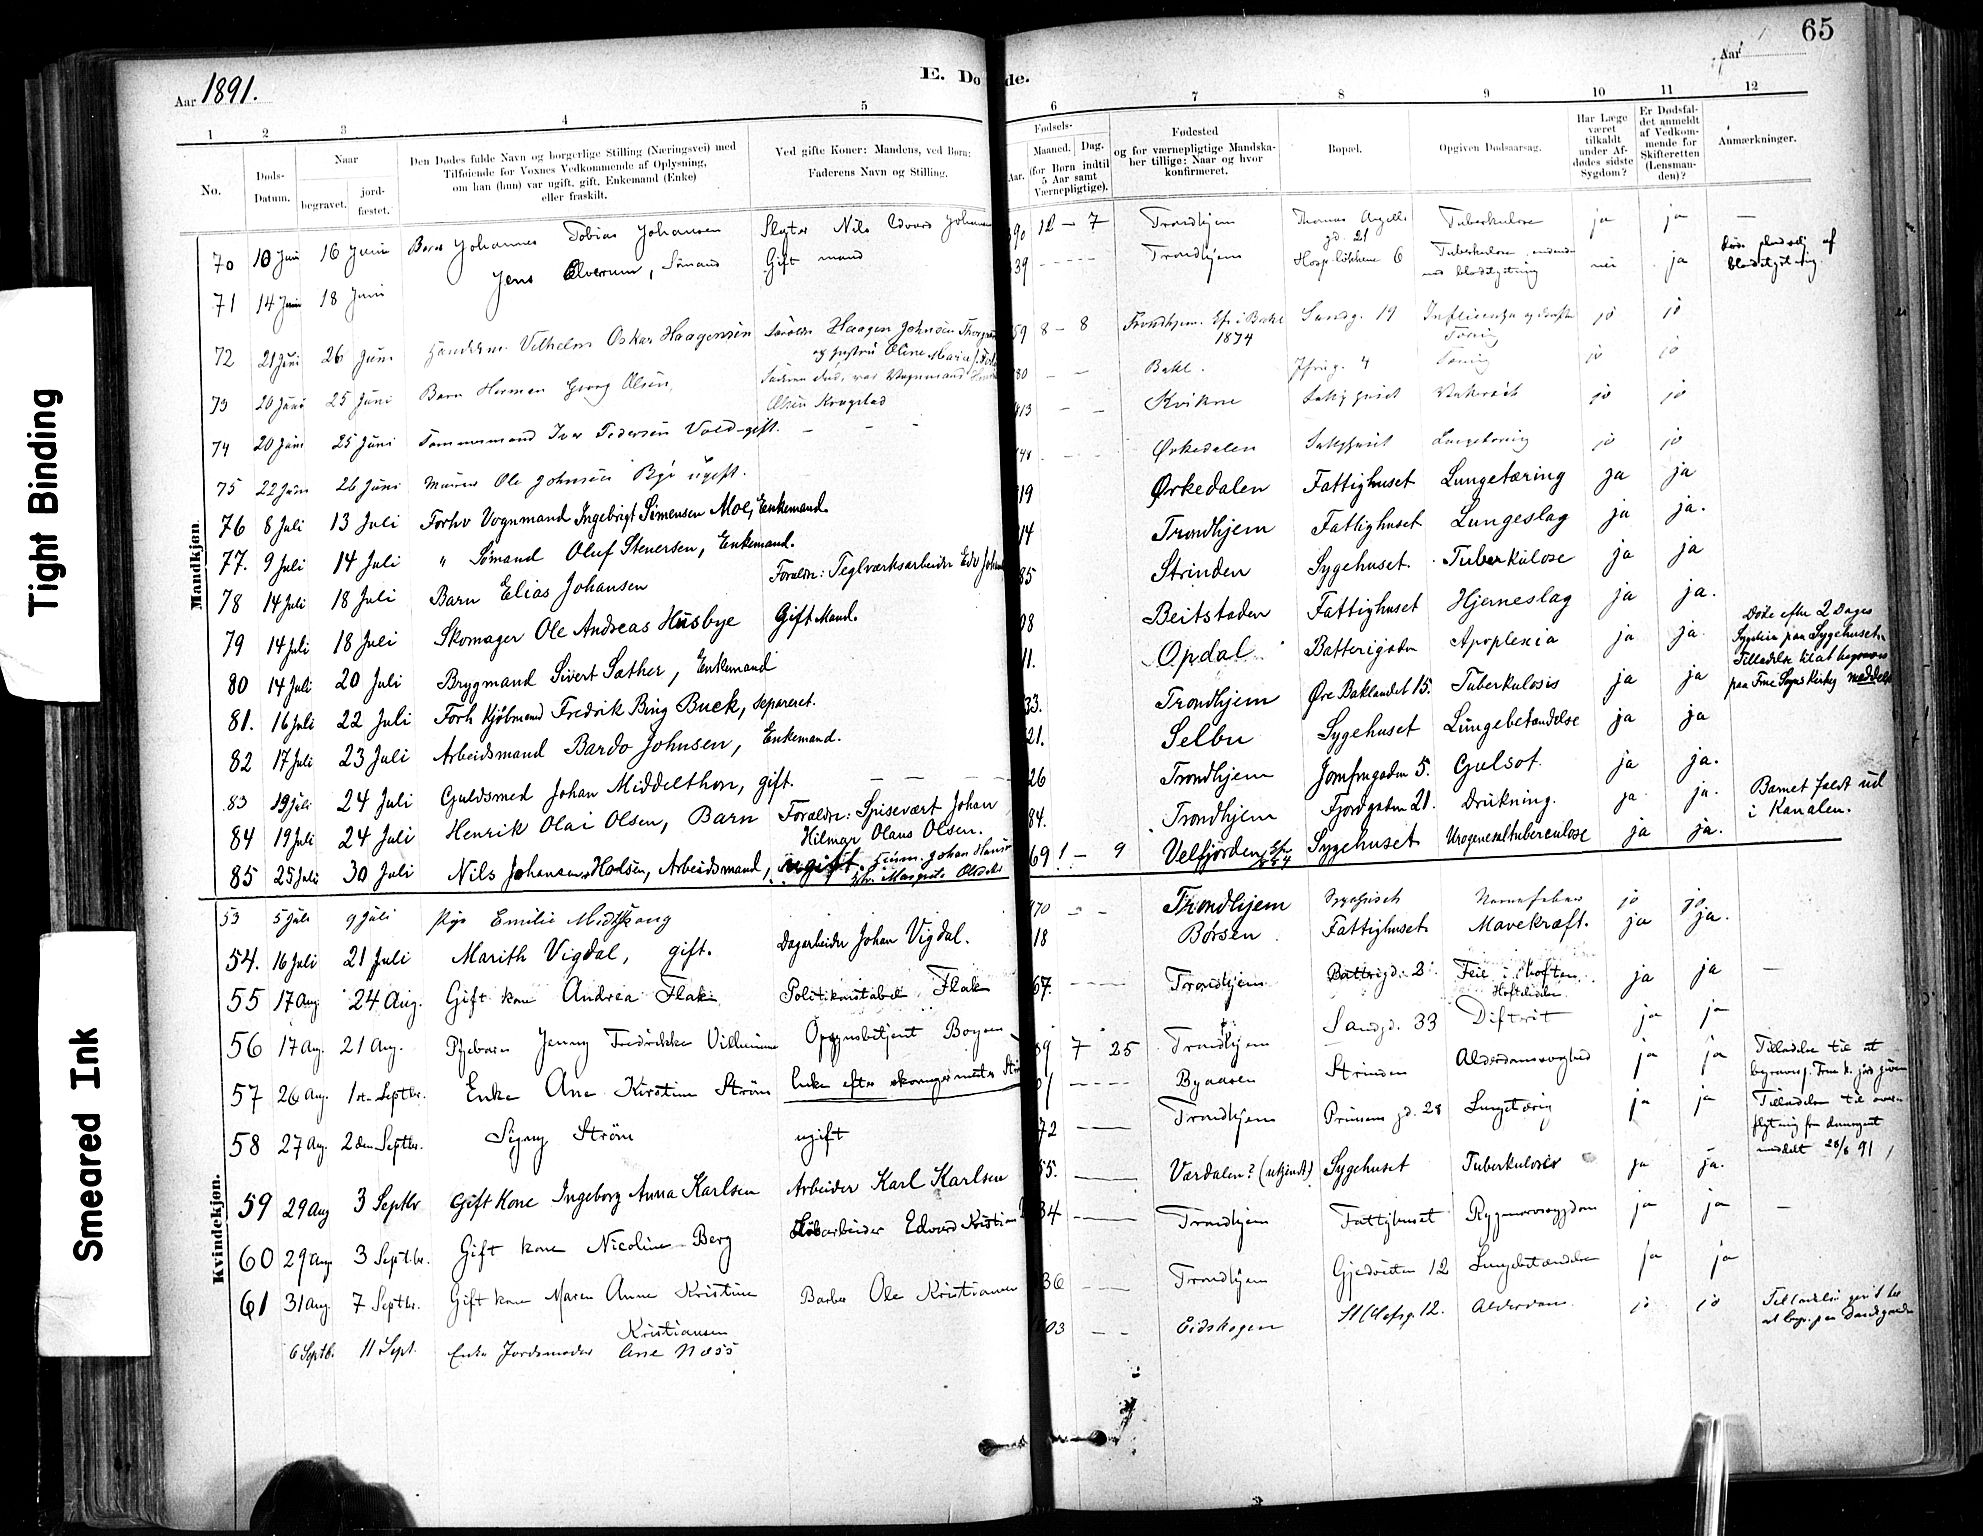 Tight Binding
Smeared Ink
65
Aar 1891.
E. Dø de.
Aar
1 2 3 4 5 6 7 8 9 10 11 12
No.
Døds-Datum.
Naar
begravet.
jordfæstet.
Den Dødes fulde Navn og borgerlige Stilling (Næringsvei) med Tilføiende for Voxnes Vedkommende af Oplysning, om han (hun) var ugift, gift, Enkemand (Enke) eller fraskilt.
Ved gifte Koner: Mandens, ved Børn: Faderens Navn og Stilling.
Fødsels-
Aar.
Maaned. Dag.
(for Børn indtil 5 Aar samt Værnepligtige).
Fødested og for værnepligtige Mandskaber tillige: Naar og hvor konfirmeret.
Bopæl.
Opgiven Dødsaarsag.
Har Læge været tilkaldt under Afdødes sidste Sygdom?
Er Dødsfaldet anmeldt af Vedkommende for Skifteretten (Lensmanden)?
Anmærkninger.
Mandkjøn.
70 10 Juni 16 Juni Johannes Tobias Johansen Nils Edvard 90 12 – 7 Trondhjem Thomas Angells gd. 21 Tuberkulose ja ja —
71 14 Juni 18 Juni Jens Elverum, Sømand Gift mand 39 Trondhjem 6 Tuberkulose med blodstyrtning nei ja Døde pludselig af blodstyrtning.
72 21 Juni 26 Juni Vilhelm Oskar Haagensen Haagen Johnsen 59 8 – 8 Trondhjem. 1874 Sandg. 19 Influenza jo jo
73 20 Juni 25 Juni Barn Herman Georg Olsen, 80 Bakl. jo jo
74 20 Juni 25 Juni Iver Pedersen Vold – gift. 13 Kvikne jo jo
75 22 Juni 26 Juni Murer Ole Johnsen ugift. Ørkedalen jo jo
76 8 Juli 13 Juli Forhv Vognmand Ingebrigt Simensen Moe, Enkemand. 19 Ørkedalen Fattighuset Lungetæring ja ja
77. 9 Juli 14 Juli " Sømand Oluf Stenersen, Enkemand. 14 Trondhjem Fattighuset Lungeslag ja ja.
78 14 Juli 18 Juli Barn Elias Johansen Forældre: Teglværksarbeider Edv 85 Strinden Sygehuset. Tuberkulose ja ja
79 14 Juli 18 Juli Skomager Ole Andreas Husbye Gift Mand. 08 Beitstaden Fattighuset Hjerneslag ja ja.
80 14 Juli 20 Juli Brygmand Sivert Sæther, Enkemand 11. Opdal Batterigaden Apoplexia ja ja. Døde efter 2 Dages Sygeleie paa Sygehuset.
81. 16 Juli 22 Juli Forh Kjøbmand Fredrik Bing Buck, separeret. 33. Trondhjem Øvre Baklandet 15. Tuberkulosis ja ja Tilladelse til at begraves paa Frue Sogns Kirkeg meddelt
82 17 Juli 23 Juli Arbeidsmand Bardo Johnsen, Enkemand. 21. Selbu Sygehuset Lungebetændelse ja ja
83 19 Juli 24 Juli Guldsmed Johan Middelthon, gift. 26 Trondhjem Jomfrugaden 5. Gulsot. ja ja.
84 19 Juli 24 Juli Henrik Olai Olsen, Barn Forældre: Spisevært Johan Hilmar Olaus Olsen. 84. Trondhjem Fjordgaden 21. Drukning. ja ja. Barnet faldt ud i Kanalen.
85 25 Juli 30 Juli Nils Johansen Holsen, Arbeidsmand, ugift. 69 1 – 9 Velfjorden Sygehuset Urogenitaltuberculose ja ja.
Kvindekjøn.
53 5 Juli 9 Juli Pige Emilie 70 Trondhjem jo jo
54. 16 Juli 21 Juli Marith Vigdal, gift. Dagarbeider Johan Vigdal. 18 Børsen Fattighuset Mavekræft. ja ja.
55 17 Aug 24 Aug. Gift kone Andrea Flak Politikonstabel Flak 67. Trondhjem Batterigd. 2 Feil i Hoften. Hoftelidelse ja ja —
56 17 Aug. 21 Aug. Pigebarn Jenny Fredrikke Villumine Opsynsbetjent Boysen 89 7 25 Trondhjem Sandgd. 33 Diftrit ja ja
57 26 Aug. 1ste Septbr. Enke Ane Kirstine Strøm Enke efter skomagermester 01 Byaasen Strinden Alderdomssvaghed ja ja Tilladelse til at
58 27 Aug. 2den Septbr. Signy Strøm ugift 72 Trondhjem Prinsens gd. 28 Lungetæring ja ja Tilladelse til meddelt 28/8 91
59 29 Aug 3 Septbr Gift Kone Ingeborg Anna Karlsen Arbeider Karl Karlsen 55. Værdalen? (ukjendt) Sygehuset Tuberkulosis ja ja.
60 29 Aug 3 Septbr. Gift kone Nicoline Berg Edvard Kristian 34 Trondhjem Fattighuset Rygmarvssygdom ja ja —
61 31 Aug. 7 Septbr. Gift kone Maren Anne Kristine Kristiansen Barber Ole Kristiansen 36 Trondhjem Gjedveiten 12 Lungebetændelse ja ja
6 Septb. 11 Sept. Enke Jordmoder Ane Næss 03 Eidskogen St Olafsg. 12. Alderdom. jo jo